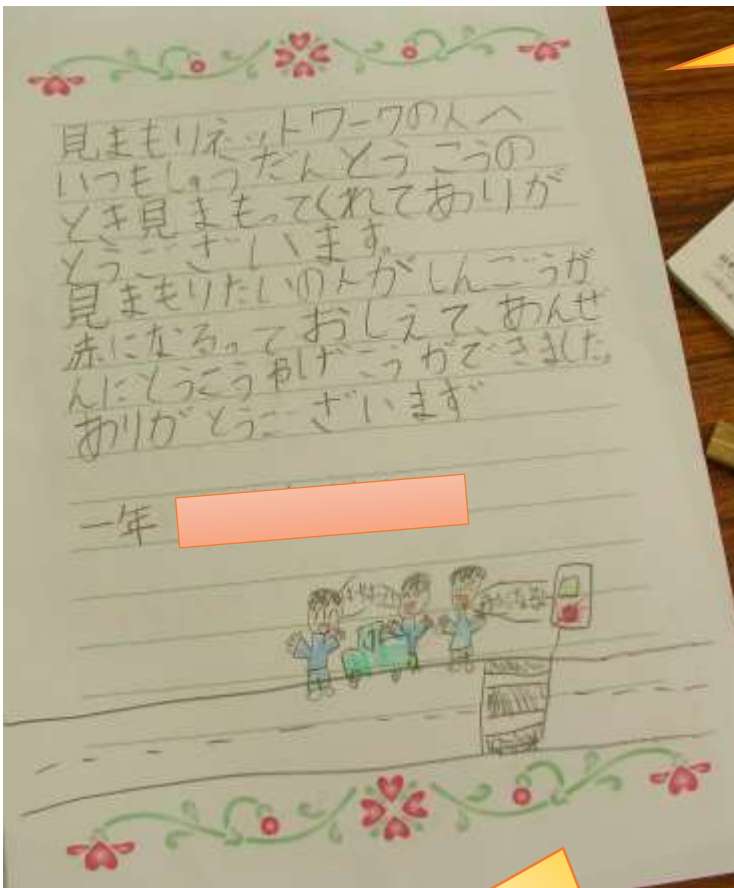 見まもりネットワークの人へ
いつもしゅうだんとうこうの
とき見まもってくれてありが
とうございます。
見まもりたいの人がしんごうが
赤になるっておしえて、あんぜ
んにとうこうやげこうができました。
ありがとうございます
一年